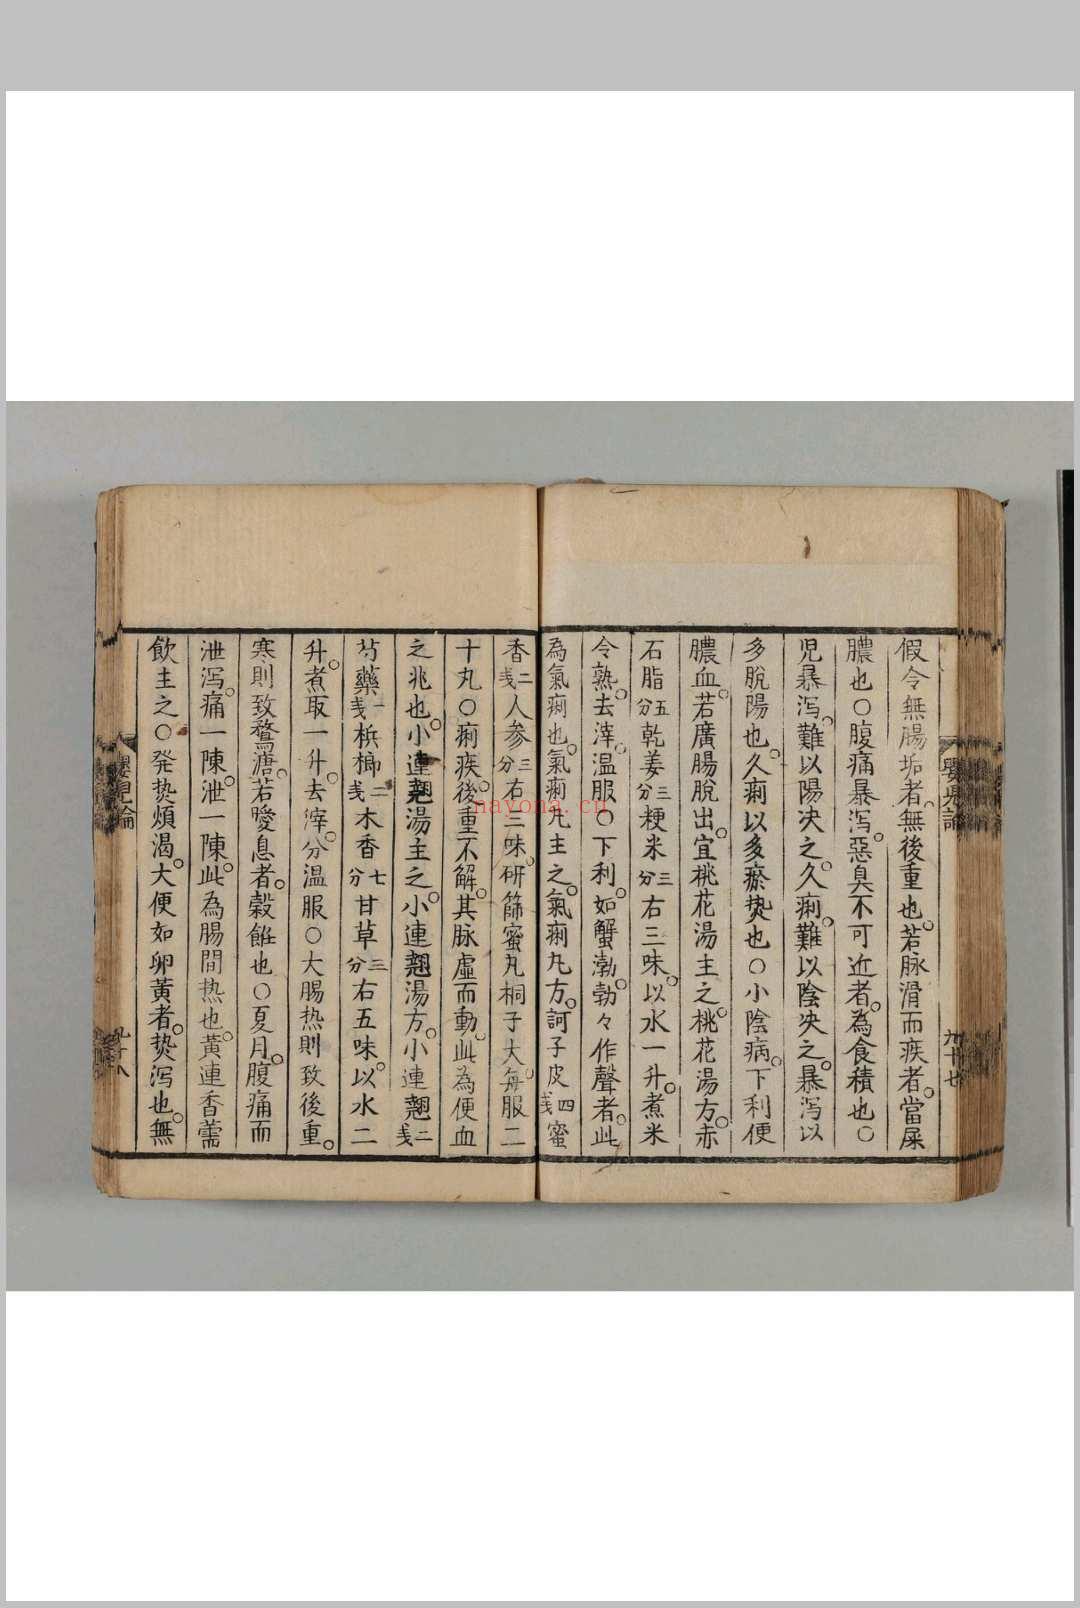 假令無腸垢者。無後重也。若脉滑而疾者。當屎
膿也○腹痛暴泻。惡臭不可近者。為食積也○
児暴泻。難以陽决之。久痢。難以陰决之。暴泻以
多脫陽也。久痢以多瘀热也○小陰病。下利便
膿血。若廣腸脫出。宜桃花湯主之。桃花湯方。赤
石脂五分乾姜三分粳米三分右三味。以水一升。煮米
令熟。去滓。温服○下利。如蟹渤渤々作聲者。此
為氣痢也。氣痢丸主之。氣痢丸方。訶子皮四戋蜜
香二戋人参三分右三味。研篩蜜丸桐子大。每服二
十丸○痢疾。後重不解。其脉虛而動。此為便血
之兆也。小連翹湯主之。小連翹湯方。小連翹二戋
芍藥一戋梹榔二戋木香七分甘草三分右五味。以水二
升。煮取一升。去滓。分温服○大腸热則致後重。
寒則致鶩溏。若噯息者。穀餒也○夏月。腹痛而
泄泻。痛一陳。泄一陳。此為腸間热也。黃連香薷
飲主之○発热煩渴。大便如卵黃者。热泻也。無
嬰児論
九十七
嬰児論
九十八
nayona.cn